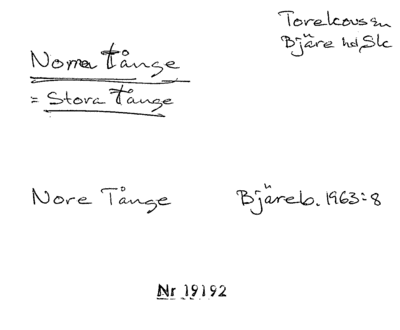 Torekovs sn
Bjäre hd, Sk
Norra Tånge
= Stora Tånge
Nore Tånge Bjäreb. 1963:8
Nr 19192